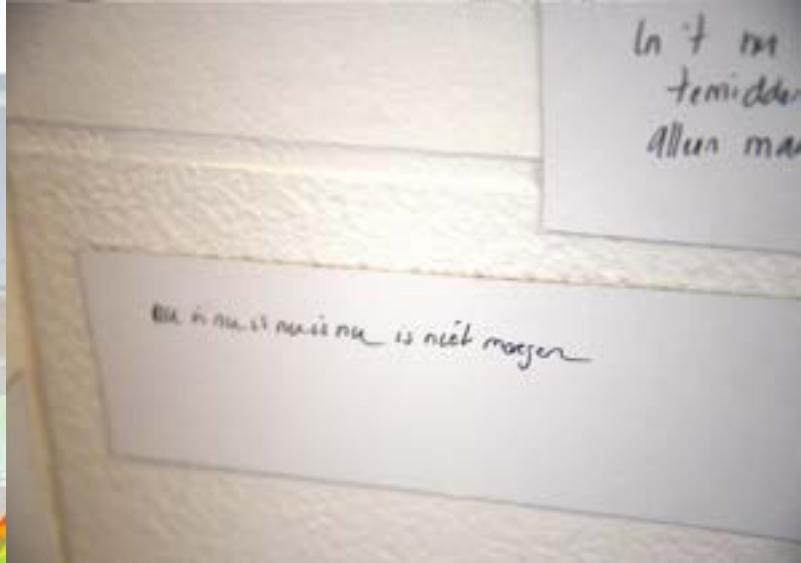 In 't nu
temidden
alleen maar
nu is nu is nu is nu is niet morgen